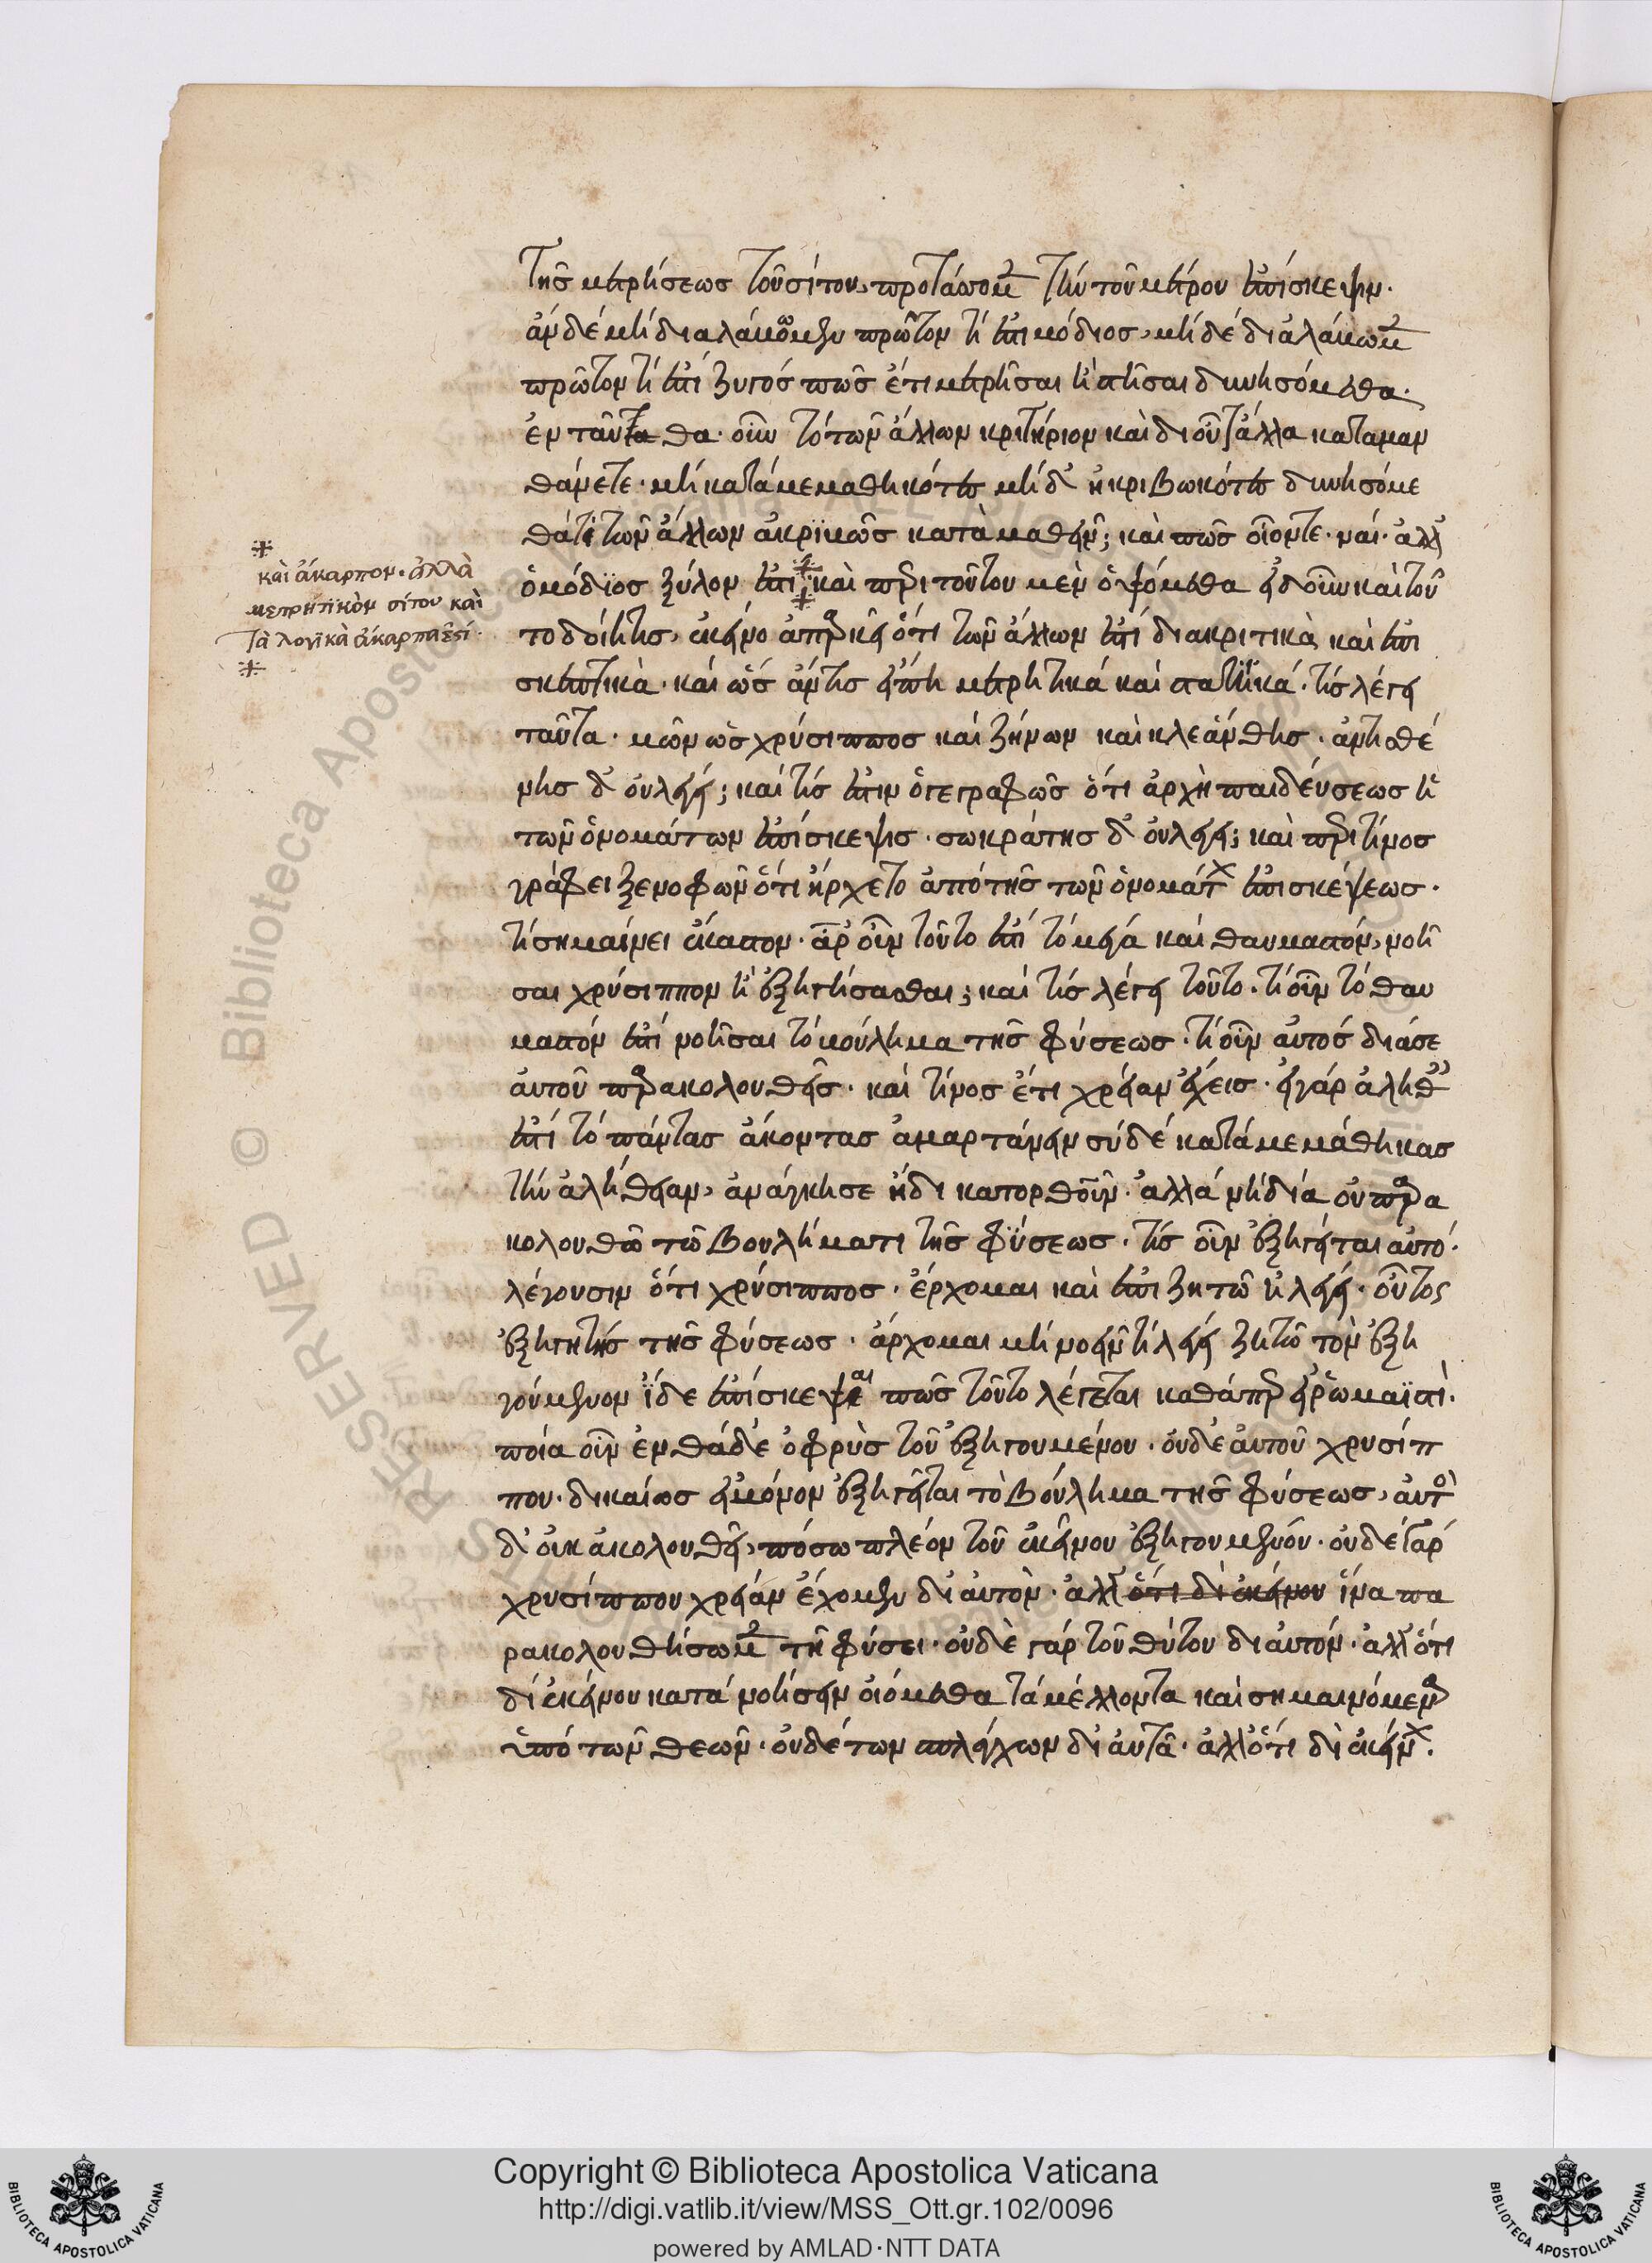 τῆς μετρήσεως τοῦ σίτου, προτάσσομεν τὴν τοῦ μέτρου ἐπίσκεψιν.
ἂν δὲ μὴ διαλάβωμεν πρῶτον τί ἐστι μόδιος, μὴ δὲ διαλάβωμεν
πρῶτον τί ἐστι ζυγός πῶς ἔτι μετρῆσαι ἢ στῆσαι δυνησόμεθα.
ἐνταῦθα· οὖν τὸ τῶν ἄλλων κριτήριον καὶ δι οὗ τἄλλα καταμαν
θάνεται· μὴ καταμεμαθηκότες μὴ δ' ἠκριβωκότες δυνησόμε
θά τι τῶν ἄλλων ἀκριβῶς καταμαθεῖν; καὶ πῶς οἴονται· ναί· ἀλλ'
ὁ μόδϊος ξύλον ἐστὶ· καὶ περὶ τούτου μὲν ὀψόμεθα εἰ δ' οὖν καὶ τοῦ
το δοίη τις, ἐκεῖνο ἀπαρκεῖ ὅτι τῶν ἄλλων ἐστὶ διακριτικὰ καὶ ἐπι
σκεπτικά· καὶ ὡς ἄν τις εἴποι μετρητικά καὶ στατικά. τίς λέγει
ταῦτα· μόνος χρύσιππος καὶ ζήνων καὶ κλεάνθης. ἀντισθέ
νης δ' οὐ λέγει; καὶ τίς ἐστιν ὁ γεγραφὼς ὅτι ἀρχὴ παιδεύσεως ἡ
τῶν ὀνομάτων ἐπίσκεψις. σωκράτης δ' οὐ λέγει; καὶ περὶ τίνος
γράφει ξενοφῶν ὅτι ἤρχετο ἀπὸ τῆς τῶν ὀνομάτων ἐπισκέψεως.
τί σημαίνει ἕκαστον. ἆρ' οὖν τοῦτο ἐστὶ τὸ μέγα καὶ θαυμαστόν, νοῆ
σαι χρύσιππον ἢ ἐξηγήσασθαι; καὶ τίς λέγει τοῦτο· τί οὖν τὸ θαυ
μαστόν ἐστί νοῆσαι τὸ βούλημα τῆς φύσεως· τί οὖν αὐτός διά σε
αὐτοῦ παρακολουθεῖς. καὶ τίνος ἔτι χρείαν ἔχεις. εἰ γάρ ἀληθές
ἐστι τὸ πάντας ἄκοντας ἁμαρτάνειν σύ δὲ καταμεμάθηκας
τὴν ἀλήθειαν, ἀνάγκη σε ἤδη κατορθοῦν. ἀλλὰ νὴ δία οὐ παρα
κολουθῶ τῷ βουλήματι τῆς φύσεως. τίς οὖν ἐξηγεῖται αὐτό.
λέγουσιν ὅτι χρύσιππος. ἔρχομαι καὶ ἐπιζητῶ τί λέγει οὗτος
ἐξηγητὴς τῆς φύσεως. ἄρχομαι μὴ νοεῖν τί λέγει ζητῶ τὸν ἐξη
γούμενον ἴδε ἐπίσκεψαι πῶς τοῦτο λέγεται καθάπερ εἰ ῥωμαϊστί.
ποία οὖν ἐνθάδε ὀφρὺς τοῦ ἐξηγουμένου. οὐδὲ αὐτοῦ χρυσίπ
που. δικαίως εἰ μόνον ἐξηγεῖται τὸ βούλημα τῆς φύσεως, αὐτὸ
δ' οὐκ ἀκολουθεῖ, πόσω πλέον τοῦ ἐκείνου ἐξηγουμένου. οὐδὲ γάρ
χρυσίππου χρείαν ἔχομεν δι' αὐτὸν. ἀλλ' ὅτι δι ἐκείνου ἵνα πα
ρακολουθήσωμεν τῇ φύσει. οὐδὲ γάρ τοῦ θύτου δι αὐτόν. ἀλλ' ὅτι
δι' ἐκείνου κατανοήσειν οἰόμεθα τὰ μέλλοντα καὶ σημαινόμενα
ὑπὸ τῶν θεῶν. οὐδὲ τῶν σπλάγχνων δι' αὐτά. ἀλλ' ὅτι δι' ἐκείνων.
καὶ ἄκαρπον. ἀλλὰ
μετρητικὸν σίτου καὶ
τὰ λογικὰ ἄκαρπα ἐστί.